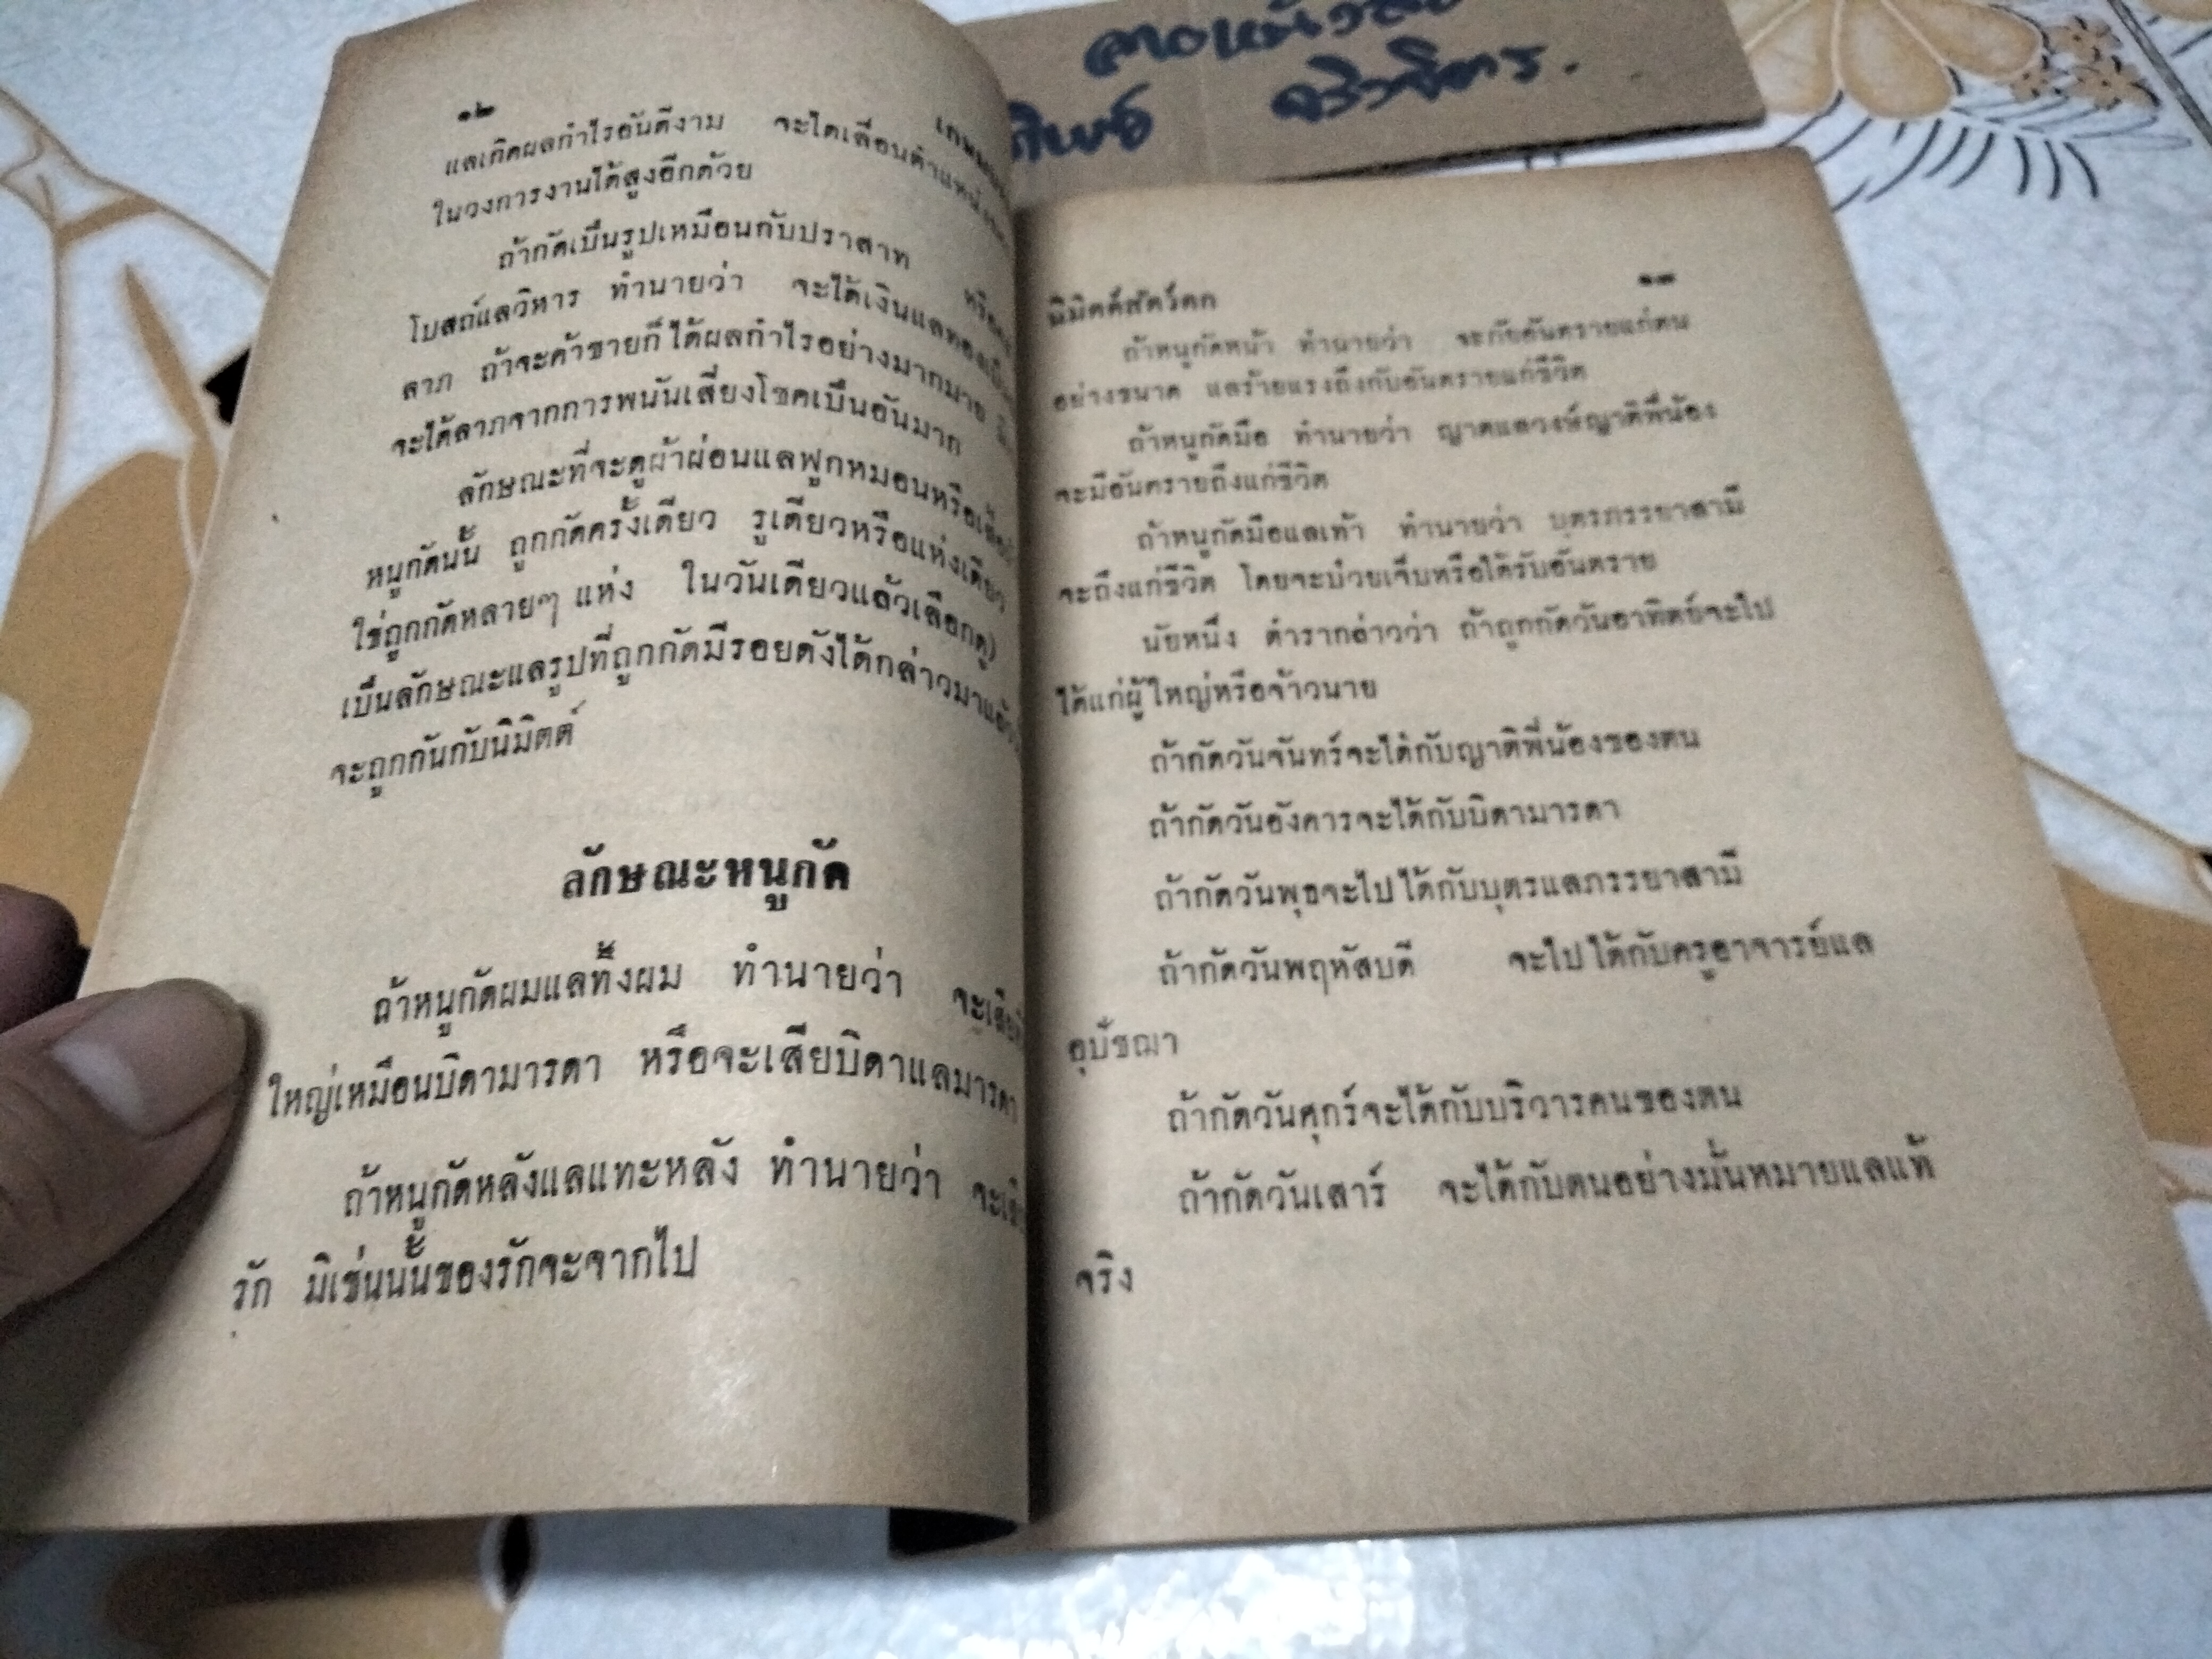 ๑๒
แลเกิดผลกำไรอันดีงาม จะได้เลื่อนตำแหน่ง
ในวงการงานได้สูงอีกด้วย
ถ้ากัดเป็นรูปเหมือนกับปราสาท
โบสถ์แลวิหาร ทำนายว่า จะได้เงินแลทองเป็น
ลาภ ถ้าจะค้าขายก็ได้ผลกำไรอย่างมากมาย
จะได้ลาภจากการพนันเสี่ยงโชคเป็นอันมาก
ลักษณะที่จะดูผ้าผ่อนแลฟูกหมอนหรือ
หนูกัดนั้น ถูกกัดครั้งเดียว รูเดียวหรือแห่งเดียว
ใช่ถูกกัดหลายๆ แห่ง ในวันเดียวแล้วเลือกดู)
เป็นลักษณะแลรูปที่ถูกกัดมีรอยดังได้กล่าวมาแล้ว
จะถูกกันกับนิมิตต์
ลักษณะหนูกัด
ถ้าหนูกัดผมแลทึ้งผม ทำนายว่า
ใหญ่เหมือนบิดามารดา หรือจะเสียบิดาแลมารดา
ถ้าหนูกัดหลังแลแทะหลัง ทำนายว่า
รัก มิเช่นนั้นของรักจะจากไป
นิมิตต์สัตว์ตก
๑๓
ถ้าหนูกัดหน้า ทำนายว่า จะภัยอันตรายแก่ตน
อย่างขนาด แลร้ายแรงถึงกับอันตรายแก่ชีวิต
ถ้าหนูกัดมือ ทำนายว่า ญาตแลวงษ์ญาติพี่น้อง
จะมีอันตรายถึงแก่ชีวิต
ถ้าหนูกัดมือแลเท้า ทำนายว่า บุตรภรรยาสามี
จะถึงแก่ชีวิต โดยจะป่วยเจ็บหรือได้รับอันตราย
นัยหนึ่ง ตำรากล่าวว่า ถ้าถูกกัดวันอาทิตย์จะไป
ได้แก่ผู้ใหญ่หรือจ้าวนาย
ถ้ากัดวันจันทร์จะได้กับญาติพี่น้องของตน
ถ้ากัดวันอังคารจะได้กับบิดามารดา
ถ้ากัดวันพุธจะไปได้กับบุตรแลภรรยาสามี
ถ้ากัดวันพฤหัสบดี จะไปได้กับครูอาจารย์แล
อุปัชฌา
ถ้ากัดวันศุกร์จะได้กับบริวารคนของตน
ถ้ากัดวันเสาร์ จะได้กับตนอย่างมั่นหมายแลแท้
จริง